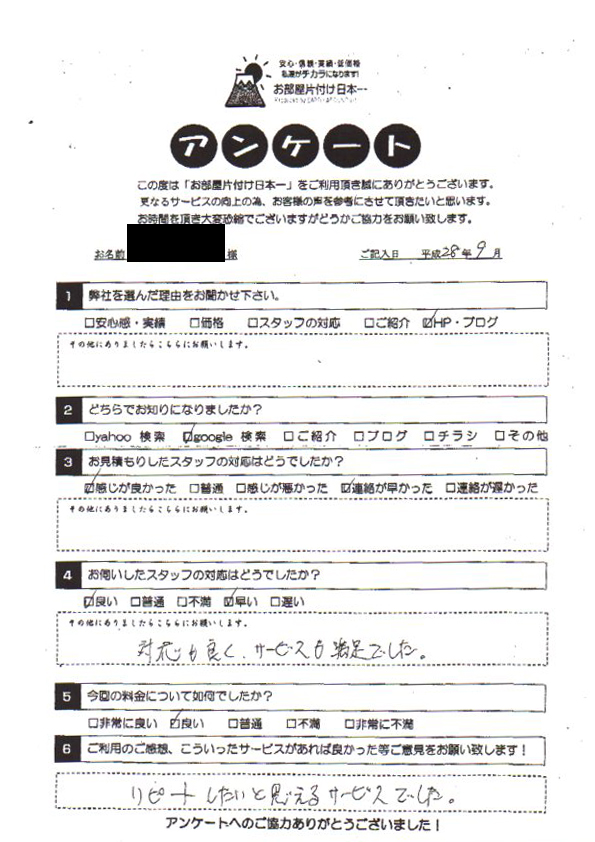 安心・信頼・実績・低価格
私達がチカラになります!
お部屋片付け日本一
アンケート
この度は「お部屋片付け日本一」をご利用頂き誠にありがとうございます。
更なるサービスの向上の為、お客様の声を参考にさせて頂きたいと思います。
お時間を頂き大変恐縮でございますがどうかご協力をお願い致します。
お名前 様 ご記入日 平成28年9月
1 弊社を選んだ理由をお聞かせ下さい。
□安心感・実績 □価格 □スタッフの対応 □ご紹介 ☑HP・ブログ
その他にありましたらこちらにお願いします。
2 どちらでお知りになりましたか?
□yahoo 検索 ☑google 検索 □ご紹介 □ブログ □チラシ □その他
3 お見積もりしたスタッフの対応はどうでしたか?
☑感じが良かった □普通 □感じが悪かった ☑連絡が早かった □連絡が遅かった
その他にありましたらこちらにお願いします。
4 お伺いしたスタッフの対応はどうでしたか?
☑良い □普通 □不満 ☑早い □遅い
その他にありましたらこちらにお願いします。
対応も良く、サービスも満足でした。
5 今回の料金について如何でしたか?
□非常に良い ☑良い □普通 □不満 □非常に不満
6 ご利用のご感想、こういったサービスがあれば良かった等ご意見をお願い致します!
リピートしたいと思えるサービスでした。
アンケートへのご協力ありがとうございました!